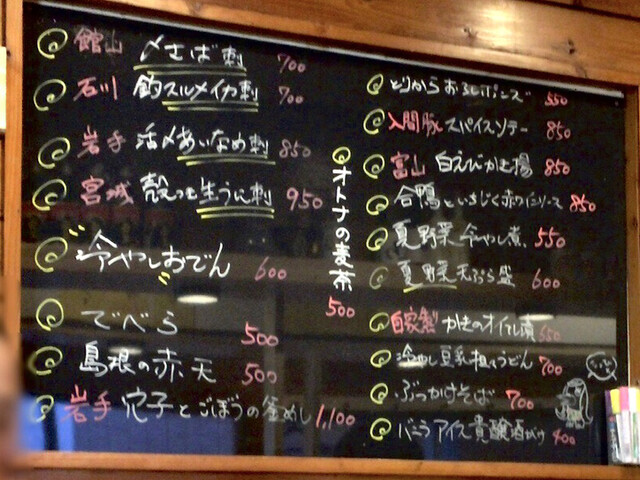 館山 〆さば刺 700
石川 釣スルメイカ刺 700
岩手 活〆あいなめ刺 850
宮城 殻つき生うに刺 950
冷やしおでん 600
でべら 500
島根の赤天 500
岩手 穴子とごぼうの釜めし 1,100
オトナの麦茶 500
とりからおろしポンズ 550
入間豚スパイスソテー 850
富山 白えびかき揚 850
合鴨といちじく赤ワインソース 850
夏野菜冷やし煮 550
夏野菜天ぷら盛 600
自家製かきのオイル漬 550
冷やし豆乳担々うどん 700
ぶっかけそば 700
バニラアイス貴醸酒がけ 400